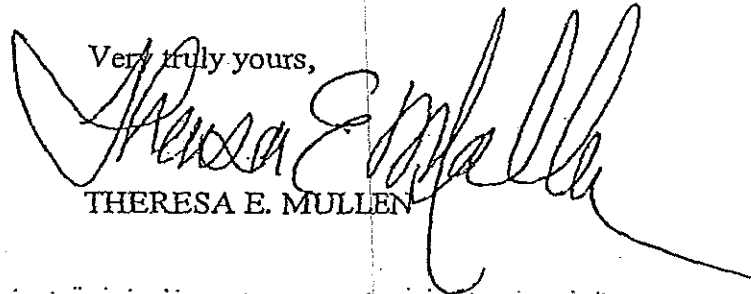 Very truly yours,
Theresa E. Mullen
THERESA E. MULLEN